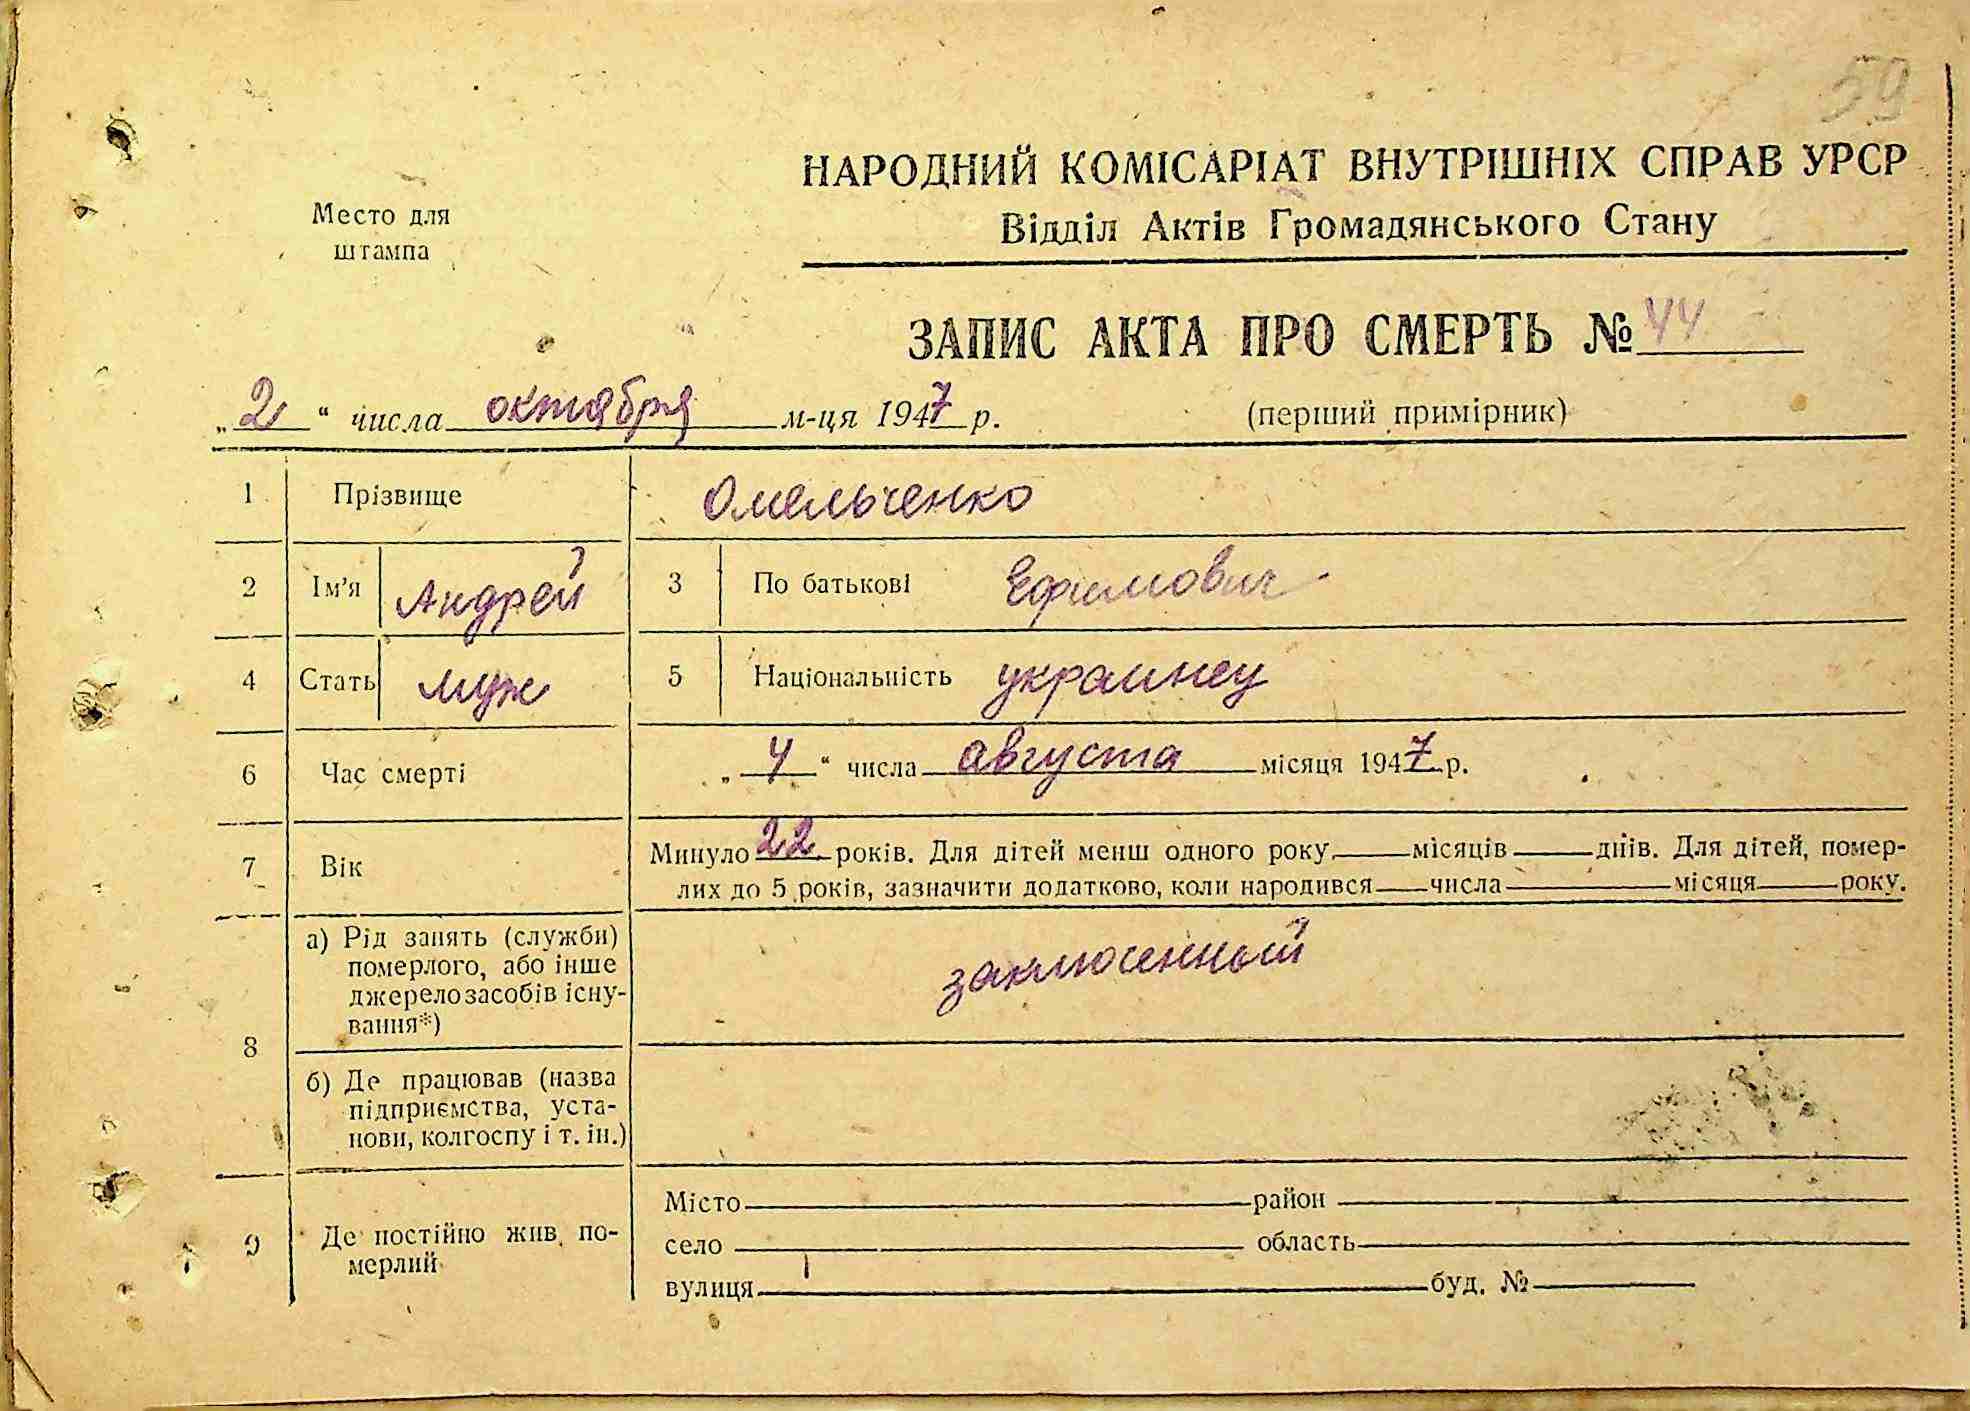 59
НАРОДНИЙ КОМІСАРІАТ ВНУТРІШНІХ СПРАВ УРСР
Место для
штампа
Відділ Актів Громадянського Стану
ЗАПИС АКТА ПРО СМЕРТЬ № 44
„2“ числа октября м-ця 1947 р. (перший примірник)
1 Прізвище Омельченко
2 Ім'я Андрей 3 По батькові Ефимович
4 Стать муж 5 Національність украинец
6 Час смерті „4“ числа августа місяця 1947 р.
7 Вік Минуло 22 років. Для дітей менш одного року, місяців днів. Для дітей, помер-
лих до 5 років, зазначити додатково, коли народився числа місяця року.
8 а) Рід занять (служби)
померлого, або інше
джерело засобів існу-
вання*)
заключенный
б) Де працював (назва
підприємства, уста-
нови, колгоспу і т. ін.)
9 Де постійно жив по-
мерлий
Місто район
село область
вулиця буд. №